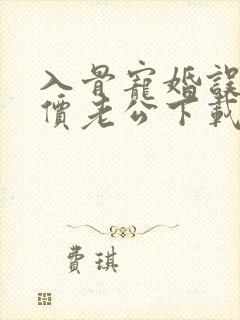 入骨寵婚誤
價老公下載
費琪